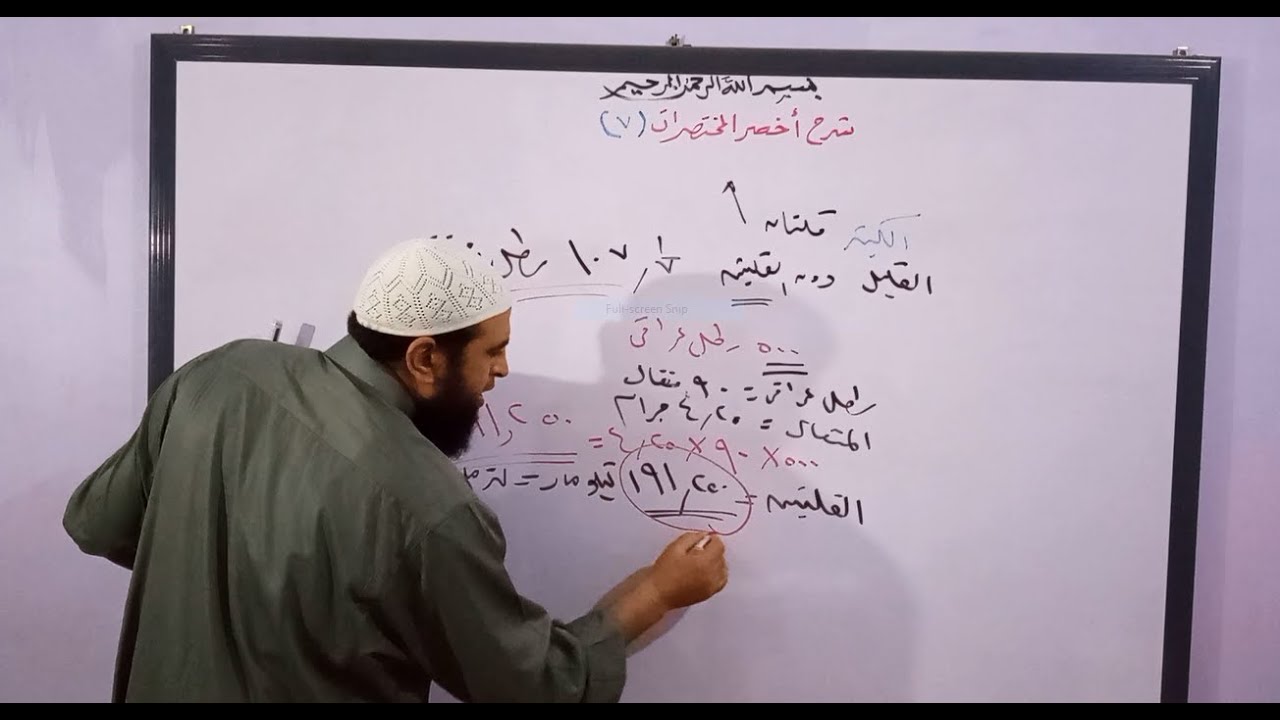 بسم الله الرحمن الرحيم
شرح أخصر المختصرات (٧)
الكثير قلتان
القليل دون القلتين
١٠٧ ١/٧ رطل
Full-screen Snip
٥٠٠ رطل عراقي
رطل عراقي = ٩٠ مثقال
المثقال = ٤,٢٥ جرام
٥٠٠ × ٩٠ × ٤,٢٥ =
القلتين = ١٩١,٢٥٠ كيلو ماء = لتر